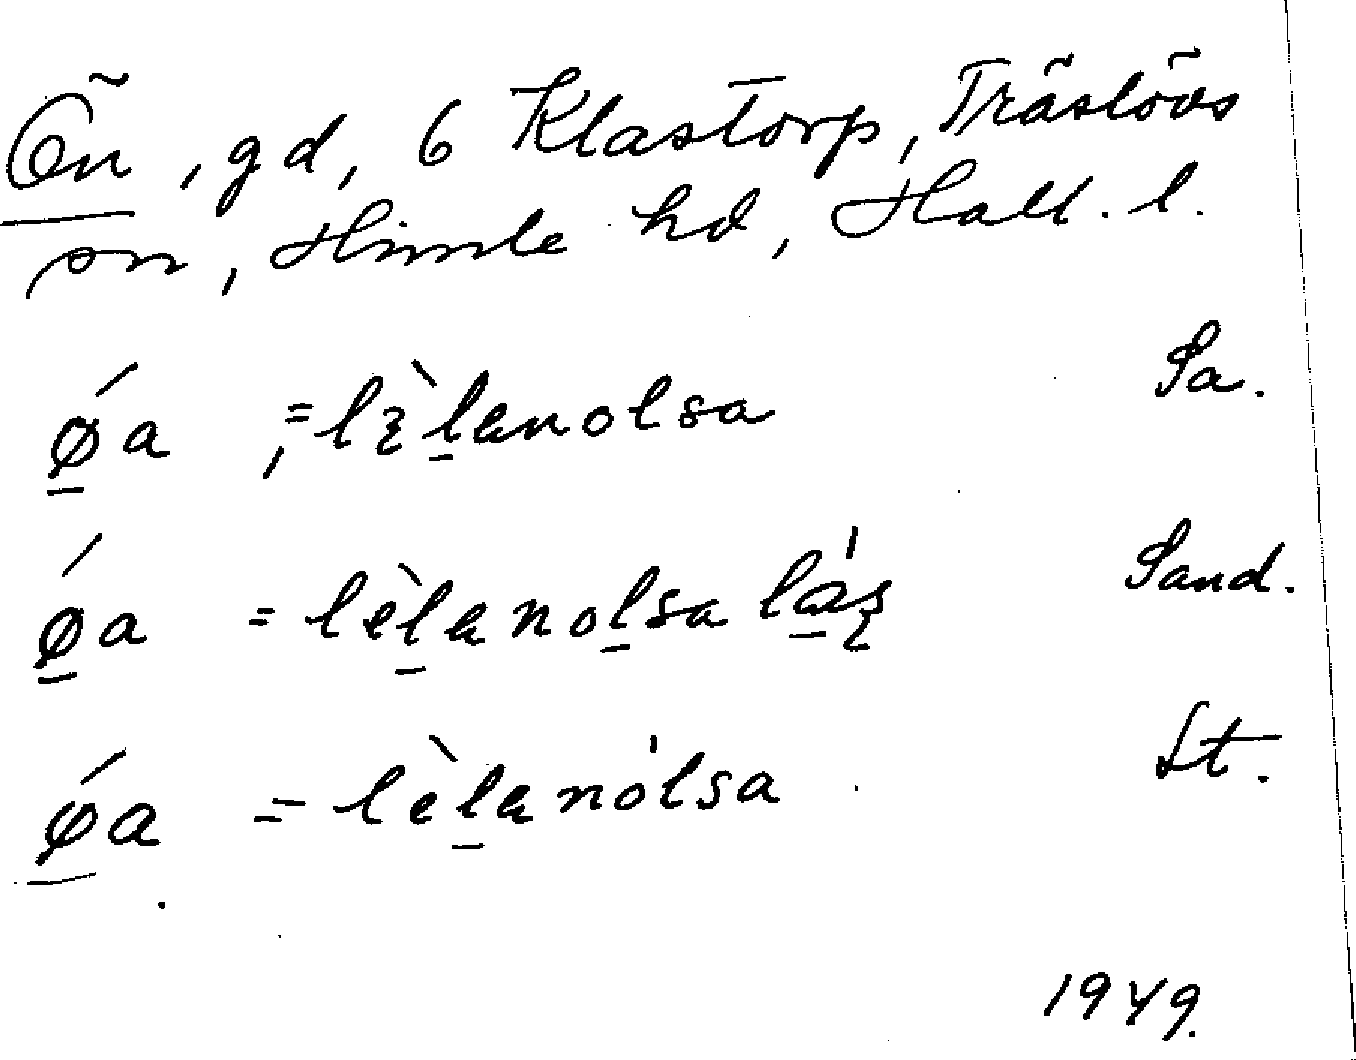 Ön, gd, 6 Klastorp, Träslövs
sn, Himle hd, Hall. l.
ǿa, = lɛ̀lanolsa Sa.
ǿa = lèlanolsa lás Sand.
ǿa = lèlanólsa St.
1949.